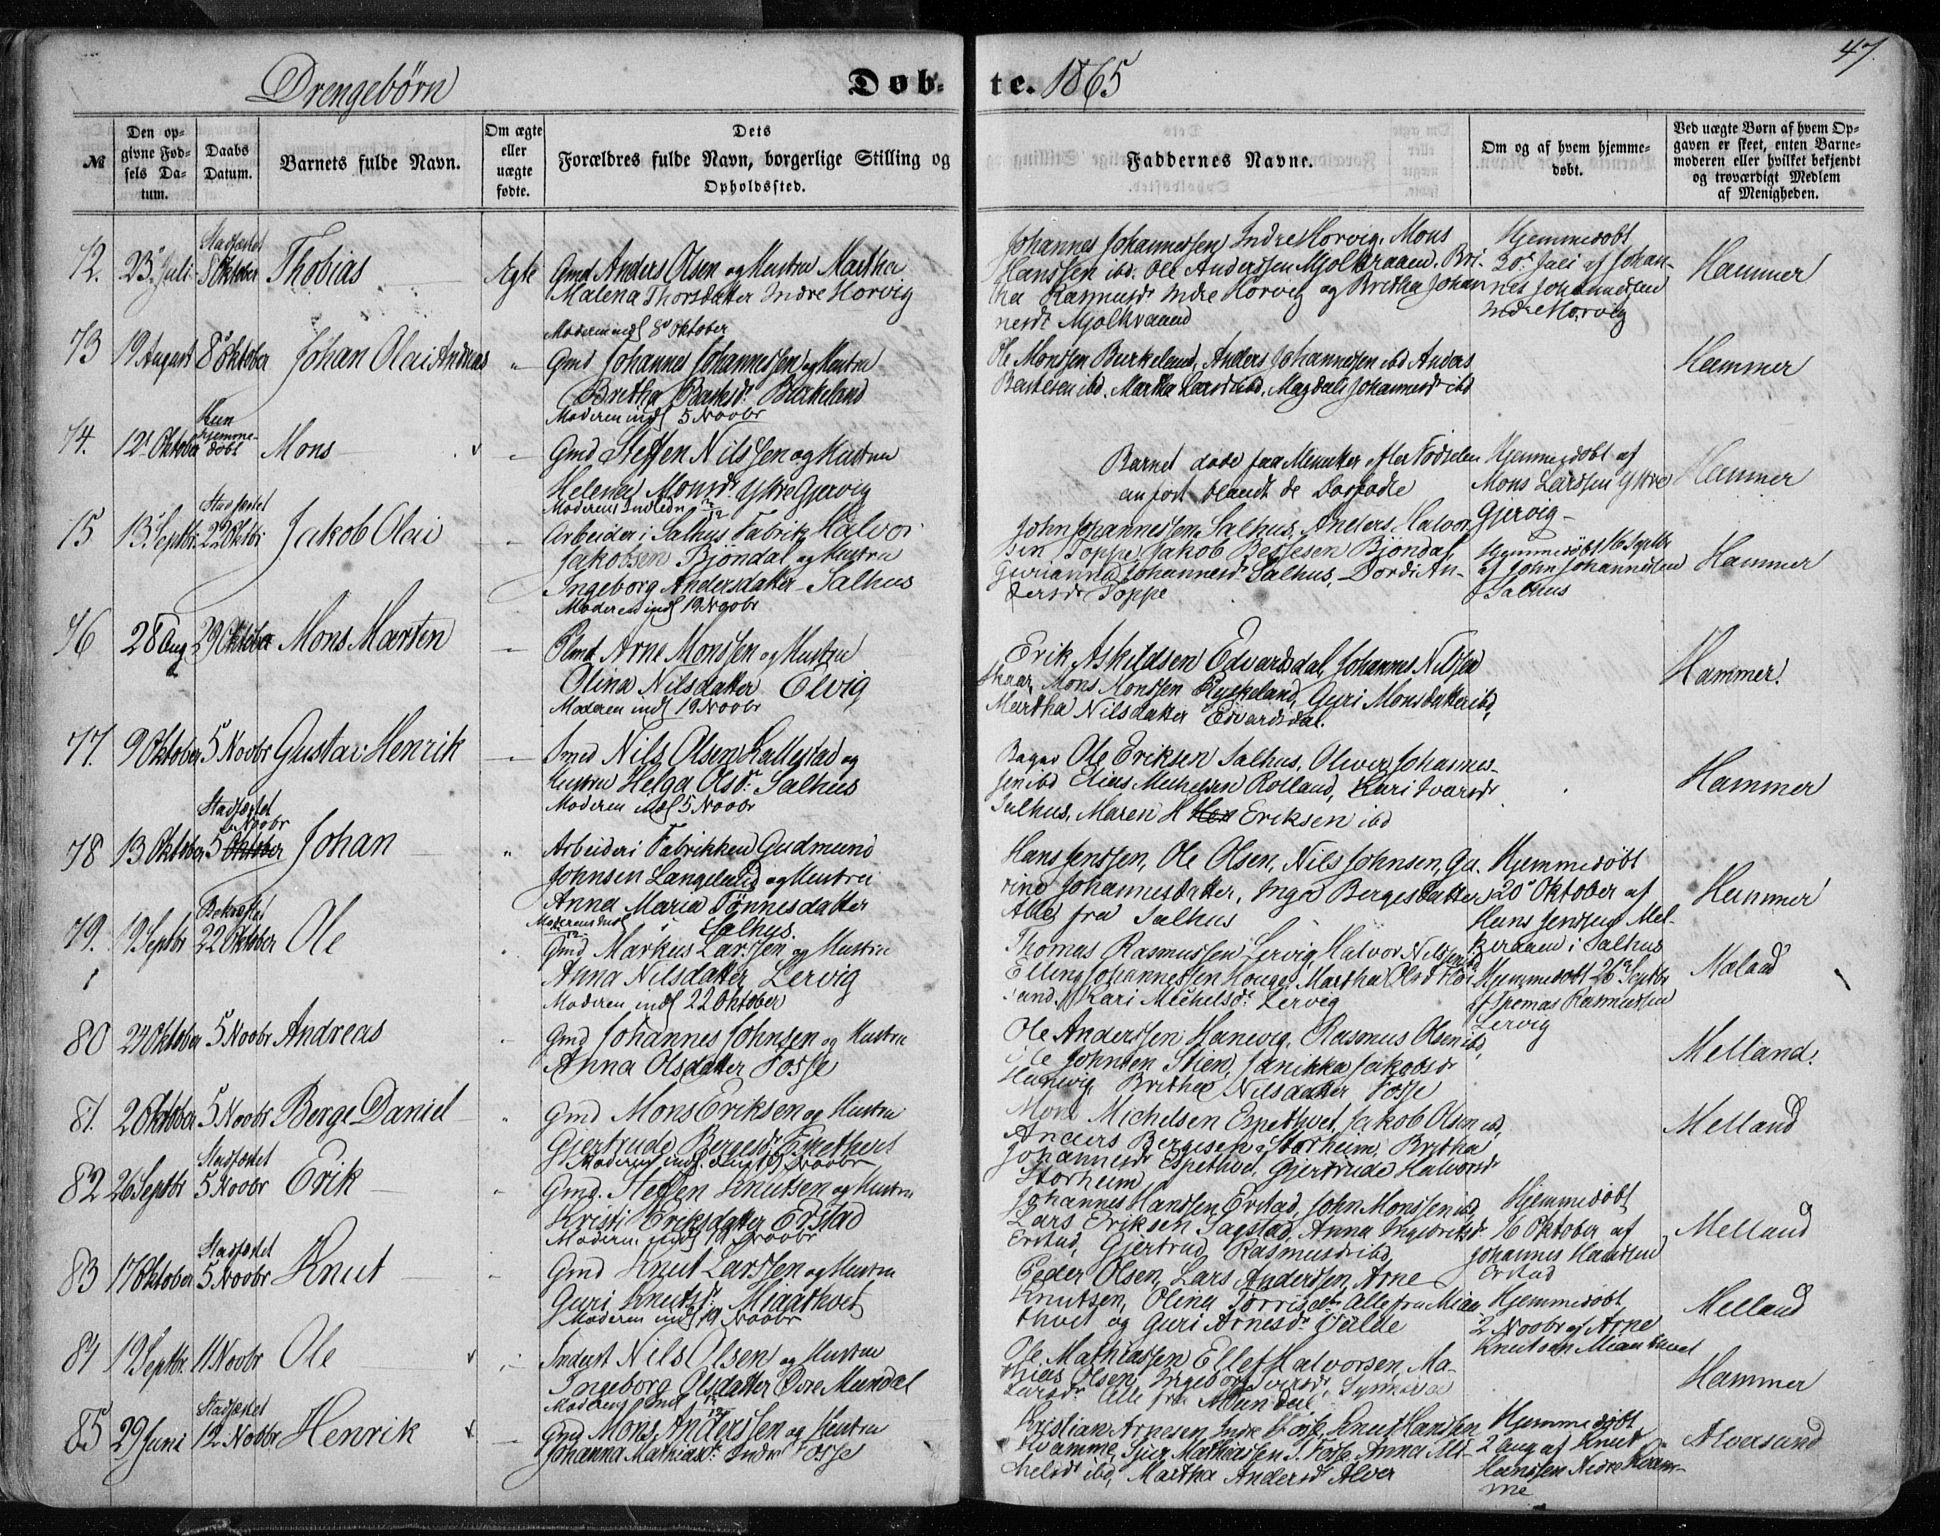 47.
Drengebørn
Døb-te. 1865
№
Den opgivne Fødsels Datum.
Daabs Datum.
Barnets fulde Navn.
Om ægte eller uægte fødte.
Dets
Forældres fulde Navn, borgerlige Stilling og
Opholdssted.
Faddernes Navne.
Om og af hvem hjemmedøbt.
Ved uægte Børn af hvem Opgaven er skeet, enten Barnemoderen eller hvilket bekjendt og troværdigt Medlem af Menigheden.
72. 23 Juli Stadfæstet 8 Oktober Thobias Ægte
Gmd Anders Olsen og Hustru Martha
Malena Thorsdatter Indre Horvig
Moderen indl 8 Oktober
Johannes Johannessen Indre Horvig. Mons
Hanssen ibd. Ole Anderssen Mjølkraaen. Bri-
tha Rasmusdr Indre Horvig og Britha Johan
nesdr Mjølkraaen
Hjemmedøbt
30 Juli af Johan-
nes Johannessen
Indre Horvig
Hammer
73 19 August 8 Oktober Johan Olai Andreas "
Gmd Johannes Johannessen og Hustru
Britha Birkeland
Moderen indl 5 Novbr
Ole Monssen Birkeland, Anders Johannessen ibd Anders
ibd. Martha Larsdr ibd. Magdali Johannesdr ibd
Hammer
74. 12 Oktober Kun hjemmedøbt Mons "
Gmd Steffen Nilssen og Hustru
Helena Monsdr Ytre Gjervig
Moderens Indledn
Barnet døde faa Minutter efter Fødselen
anført blandt de Dødfødte
Hjemmedøbt af
Mons Larssen Ytre
Gjervig
Hammer
75 13 Septbr Stadfæstet 22 Oktbr Jakob Olai "
Arbeider i Salhus Fabrik Halvor
Jakobsen Bjöndal og Hustru
Ingeborg Andersdatter Salhus
Moderen indl 19 Novbr
John Johannessen Salhus, Anders Halvor
sen Toppe, Jakob Bjöndal
Gurianna Johannesdr Salhus, Dordi An-
dersdr Toppe
Hjemmedøbt 16 Septbr
af John Johannessen
Salhus
Hammer
76 28 Aug 29 Oktober Mons Marten "
Arne Monssen og Hustru
Olina Nilsdatter Elvig
Moderen indl 19 Novbr
Erik Askildsen Edvardsdal, Johannes Nilssen
Mons Monssen Guri Monsdatter ibd,
Martha Nilsdatter Edvardsdal.
Hammer.
77. 9 Oktober 5 Novbr Gustav Henrik "
Smed Nils Olsen Hallestad og
Hustru Helga Olsdr Salhus
Moderen indl 5 Novbr
Bager Ole Eriksen Salhus, Oliver Johannes-
sen ibd Elias Michelsen Rolland, Kari Ivarsdr
Salhus, Maren H Eriksen ibd
Hammer
78 13 Oktober Stadfæstet 5 Novbr Johan "
Arbeider i Fabrikken Gudmund
Johnsen Langelund og Hustru
Anna Maria Tønnesdatter
Salhus.
Hans Jenssen, Ole Olsen, Nils Johnsen, Gu-
rine Johannesdatter, Inga Bergesdatter
Alle fra Salhus
Hjemmedøbt
20 Oktober af
Hans Jenssen Mel-
keraaen i Salhus
Hammer
79. 19 Septbr Bekræftet 22 Oktober Ole "
Gmd Markus Larssen og Hustru
Anna Nilsdatter Lervig
Moderen indl 22 Oktober
Thomas Rasmussen Lervig, Halvor Nilssen ibd
Elling Johannessen Houge, Martha Olsdr
Kari Michelsdr Lervig
Hjemmedøbt 26 Septbr
af Thomas Rasmussen
Lervig
Mæland
80 24 Oktober 5 Novbr Andreas "
Gmd Johannes Johnsen og Hustru
Anna Olsdatter Fosse
Ole Anderssen Hanevig, Rasmus Olsen ibd,
Ole Johnsen Stien, Janikka Jakobsdr
Hanevig Britha Nilsdatter Fosse
Melland.
81. 2 Oktober 5 Novbr Berge Daniel "
Gmd Mons Eriksen og Hustru
Gjertrude Bergesdr Espethvet
Moderen indl 19 Novbr
Mons Michelsen Espethvet, Jakob Olsen ibd,
Anders Bergesen Storheim, Britha
Johannesdr Espethvet, Gjertrude Halvorsdr
Storheim
Melland
82 26 Septbr Stadfæstet 5 Novbr Erik "
Gmd. Steffen Knutsen og Hustru
Kristi Eriksdatter Erstad
Moderen indl 19 Novbr
Johannes Hanssen Erstad, John Monssen ibd,
Lars Eriksen Sagstad, Anna Ingebrigtsdr
Erstad, Gjertrud Rasmusdr ibd
Hjemmedøbt
16 Oktober af
Johannes Hanssen
Erstad
Melland
83 17 Oktober Stadfæstet 5 Novbr Knut "
Gmd Knut Larssen og Hustru
Guri Knutsdr Miaathvet
Moderen indl 19 Novbr
Peder Olsen, Lars Anderssen, Arne
Knutsen, Olina Torrisdtr Alle fra Miaa
thvet og Guri Arnesdr
Hjemmedøbt
2 Novbr af Arne
Knutsen Miaathvet
Melland
84 19 Septbr 11 Novbr Ole "
Inderst Nils Olsen og Hustru
Ingeborg Olsdatter Øvre Mundal
Ole Mathiassen Ellef Halvorsen, Ma-
thias Olsen, Ingeborg Iversdr,
Larsdr Alle fra Mundal
Hammer
85 29 Juni Stadfæstet 12 Novbr Henrik "
Gmd Mons Anderssen og Hustru
Johanna Mathiasdr Indre Fosse
Kristian Arnesen, Indre Fosse, Knut Hanssen
Kvamme, Mathiassen I. Fosse Anna Mi-
chelsdr ibd, Martha Andersdr Alver
Hjemmedøbt
2 Aug af Knut
Hanssen Nedre Kvam-
me
Alversund